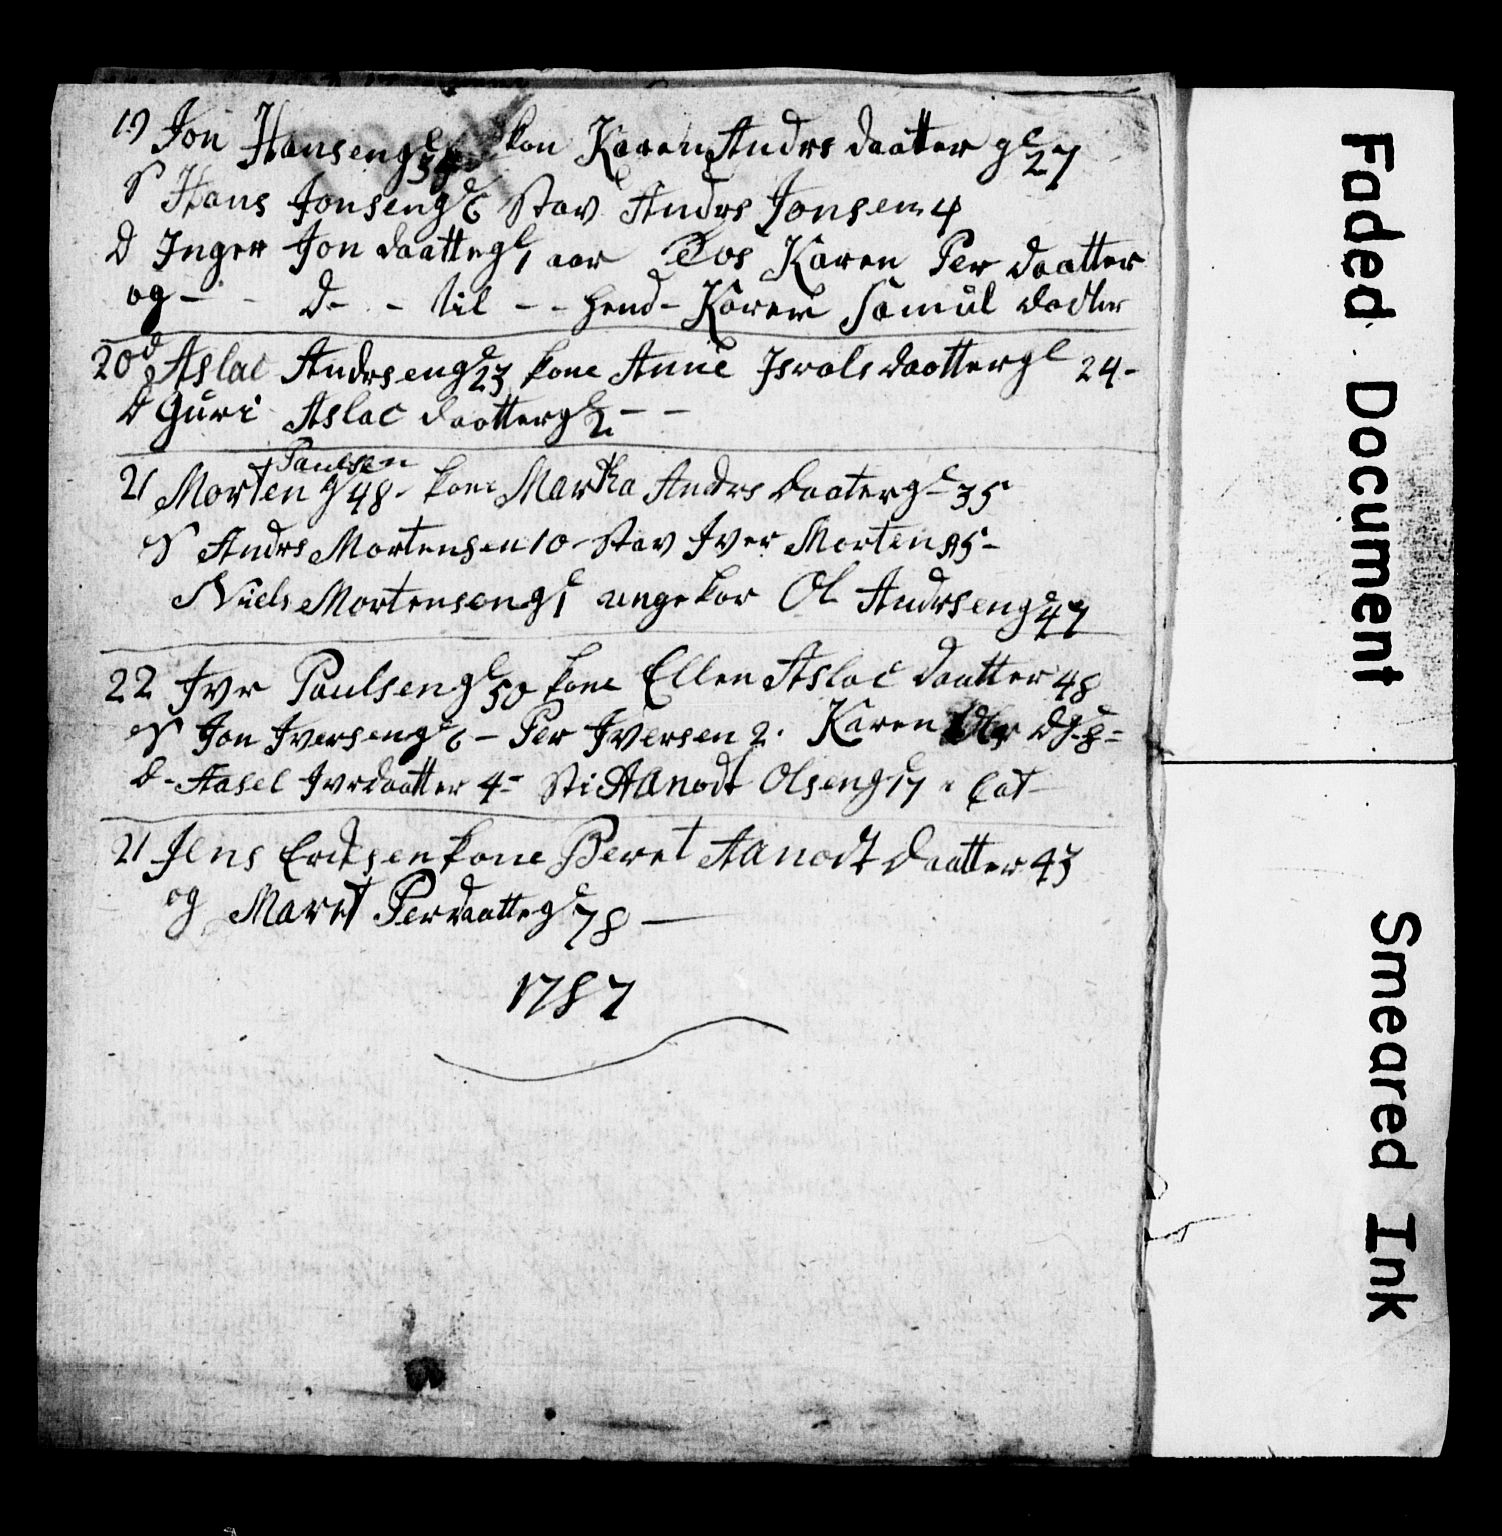 19 Jon Hanseng kon Karen Andrs daatter gl 27
S Hans Jonseng 6 Stav Andrs Jonsen 4
D Inger Jon daatteg 1 aar Tos Karen Per daatter
og - - D - - til - - hend - Karen Samül datter
20 Aslac Andrseng 23 kone Anne Isralsdaatter gl 24 -
D Güri Aslac daatterg 2 - -
Paulsen
21 Morten g 48 - kone Martha Andrs daaterg - 35
S Andrs Mortensen 10 Stav Iver Morten 5 -
Niels Mortenseng 1 ungekar Ol Andrseng 47
22 Ivr Paulseng 50 kone Ellen Aslac daatter 48
S Jon Iverseng 6 - Per Iversen 2. Karen D g 8 =
D - Aasel Ivrdaatter 4 = Sti Aanodt Olseng 17
21 Jens Ericksen kone Beret Aanodt daatter 43
og Marit Perdaatteg 78 —
1787
Faded Document
Smeared Ink